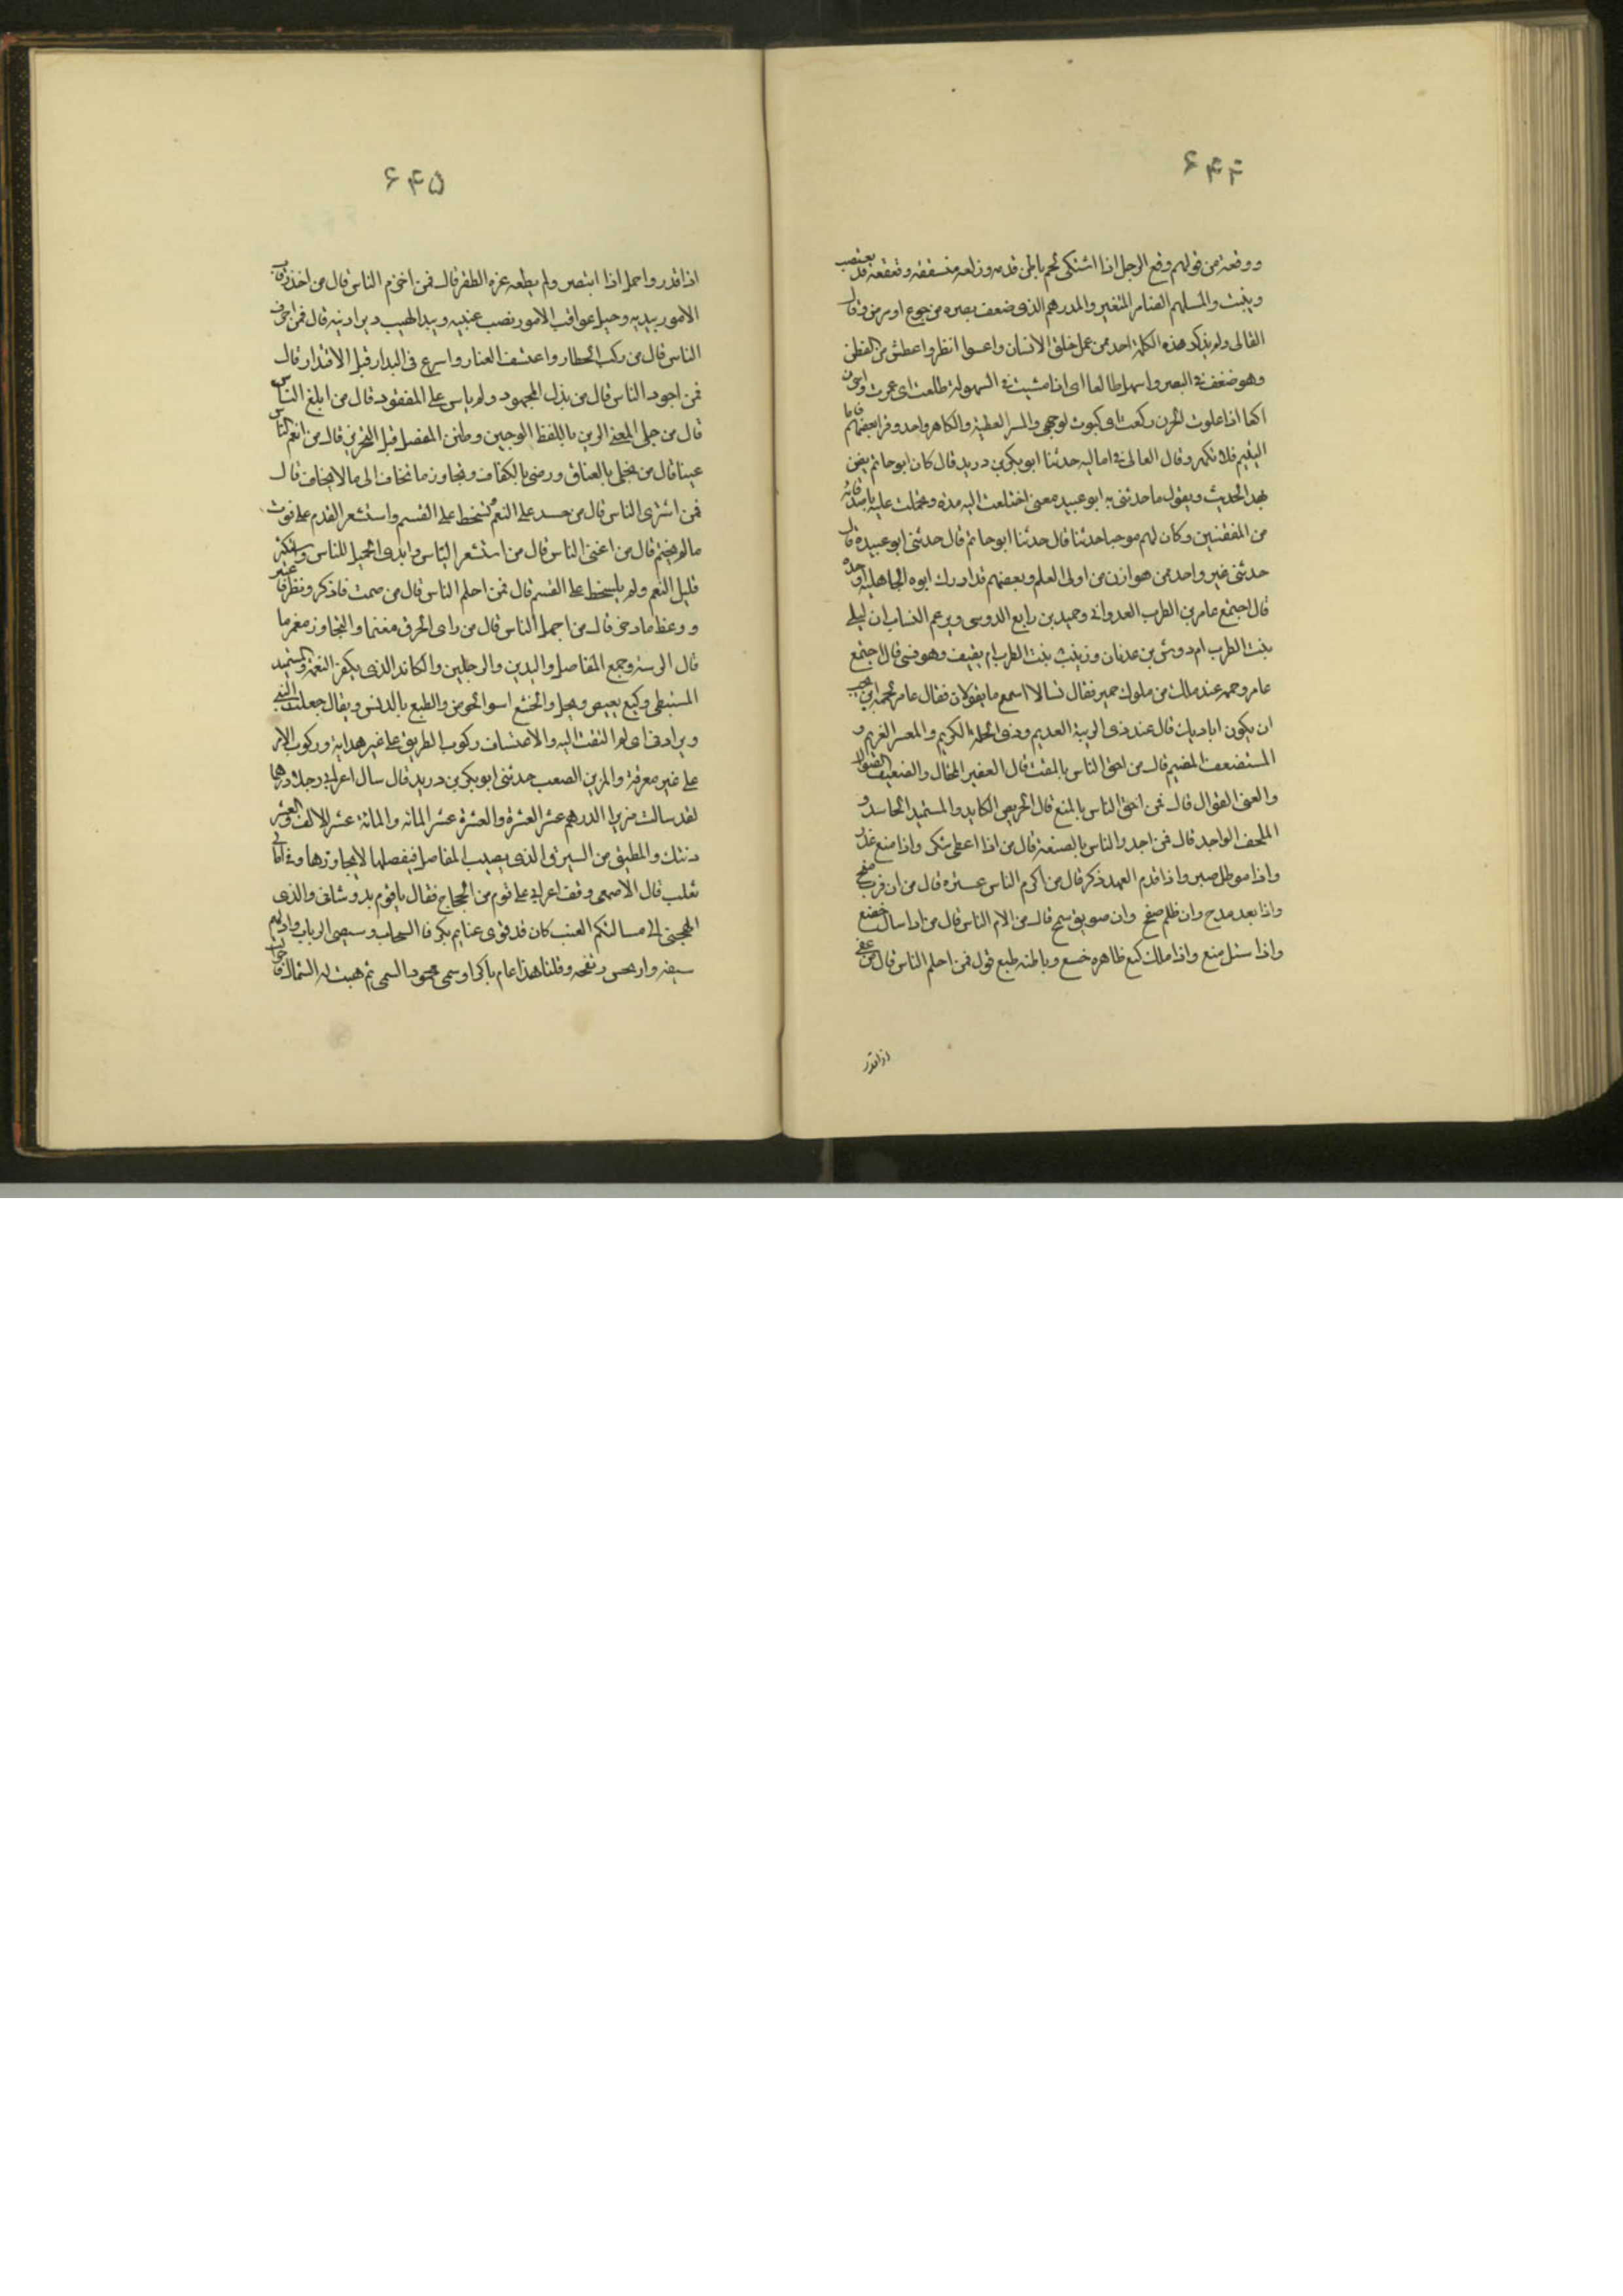 ۶۴۴
ووقعة من قولهم وقع الرجل اذا اشتكى لحم باطن قدمه وزلعه متسققه وقفعه قد يعتصب
ويثبت والمسلهم الضامر المتغير والمدرهم الذى ضعف بصره من جوع او مرض وقال
القالى ولم يذكر هذه الكلمة احد ممن عمل خلق الانسان واعسوا انظر واعطش من الغطش
وهو ضعف فى البصر واسهل طالعا اى اذا مشيت فى السهولة طلعت اى عمرت واحزن
اكعا اذا علوت الحزن ركعت اى كبوت لوجهى والسر العطية والكاهر واحد وقرا بعضهم فاما
اليتيم فلا تكهر وقال القالى فى اماليه حدثنا ابو بكر بن دريد قال كان ابو حاتم يضن
بهذا الحديث ويقول ما حدثنى به ابو عبيد معنى اختلفت اليه مدة وتحملت عليه باصدقائه
من المقفنين وكان لهم موجبا حدثنا قال حدثنا ابو حاتم قال حدثنى ابو عبيدة قال
حدثنى غير واحد من هوازن من اولى العلم وبعضهم قد ادرك ابوه الجاهلية او جده
قال اجتمع عامر بن الظرب العدوانى وحميد بن رابع الدوسى ويزعم النساب ان ليلى
بنت الظرب ام دوس بن عدنان وزينب بنت الظرب ام ثقيف وهو قسى قال اجتمع
عامر وحمه عند ملك من ملوك حمير فقال تسالا اسمع ما يقولان فقال عامر لحمه اين تحب
ان يكون اياديك قال عند ذى الريبة العديم وذى الخلة الكريم والمعسر الغريم و
المستضعف المضيم قال من احق الناس بالمقت قال الفقير المختال والضعيف الصوال
والعى القوال قال فمن احق الناس بالمنع قال الحريص الكايد والمستميد الحاسد و
الملحف الواجد قال فمن اجدر الناس بالصنعة قال من اذا اعطى شكر واذا منع عذر
واذا موطل صبر واذا قدم العهد ذكر قال من اكرم الناس عشرة قال من ان قرب منح
واذا بعد مدح وان ظلم صفح وان صويق سمح قال من الام الناس قال من اذا سال خضع
واذا سئل منع واذا ملك كنع ظاهره خشع وباطنه طبع قول فمن احلم الناس قال من عفى
اذا قدر
۶۴۵
اذا قدر واجمل اذا انتصر ولم يطعه عزة الظفر قال فمن احزم الناس قال من اخذ رقاب
الامور بيديه وجعل عواقب الامور نصب عينيه ونبذ الهيب دبر اذنيه قال فمن اخرق
الناس قال من ركب الخطار واعتسف العثار واسرع فى البدار قبل الاقتدار قال
فمن اجود الناس قال من بذل المجهود ولم ياس على المفقود قال من ابلغ الناس
قال من جلى المعنى المزيز باللفظ الوجيز وطبق المفصل قبل التحزيز قال من انعم الناس
عيشا قال من تحلى بالعفاف ورضى بالكفاف وتجاوز ما تخاف الى ما لا يخاف قال
فمن اشقى الناس قال من حسد على النعم سخط على القسم واستشعر الندم على فوت
ما لم يحتم قال من اغنى الناس قال من استشعر الياس وابدى التجمل للناس واستكثر
قليل النعم ولم يسخط على القسم قال فمن احلم الناس قال من صمت فاذكر ونظر فاعتبر
ووعظ فازدجر قال من اجهل الناس قال من راى الخرق مغنما والتجاوز مغرما
قال الرسه وجمع المفاصل واليدين والرجلين والكاند الذى يكفر النعمة والمستميد
المستبطى وكنع تقبض وبخل والجشع اسوا الحرص والطبع بالدنس ويقال جعلت الشىء
دبر اذنى اى لم التفت اليه والاعتساف ركوب الطريق على غير هداية وركوب الامر
على غير معرفة والمزيز الصعب حدثنى ابو بكر بن دريد قال سال اعرابى رجلا درهما
لقد سالت مزيزا الدرهم عشر العشرة والعشرة عشر المائة والمائة عشر الالف والالف عشر
ديتك والمطبق من السيوف الذى يصيب المفاصل فيفصلها لا يجاوزها وفى امالى
ثعلب قال الاصمعى وقف اعرابى على قوم من الحجاج فقال يا قوم بدو شانى والذى
الجئنى الى مسالتكم الغيث كان قد قوى عنا ثم تكرفا السحاب وشصى الرباب وادلهم
سيقه وارتجس ريقه وقلنا هذا عام باكر اوسمى محمود السمى ثم هبت له الشمال فاحزالت